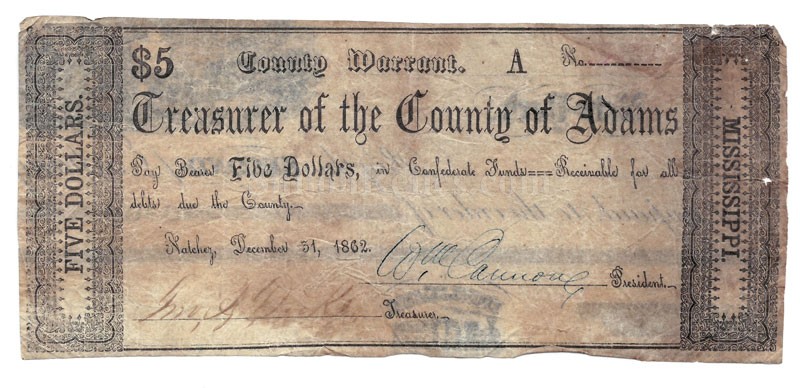 FIVE DOLLARS.
$5 County Warrant. A No.
Treasurer of the County of Adams
Pay Bearer Five Dollars, in Confederate Funds===Receivable for all
debts due the County.
Natchez, December 31, 1862.
Wm Cannon President.
Treasurer.
MISSISSIPPI.